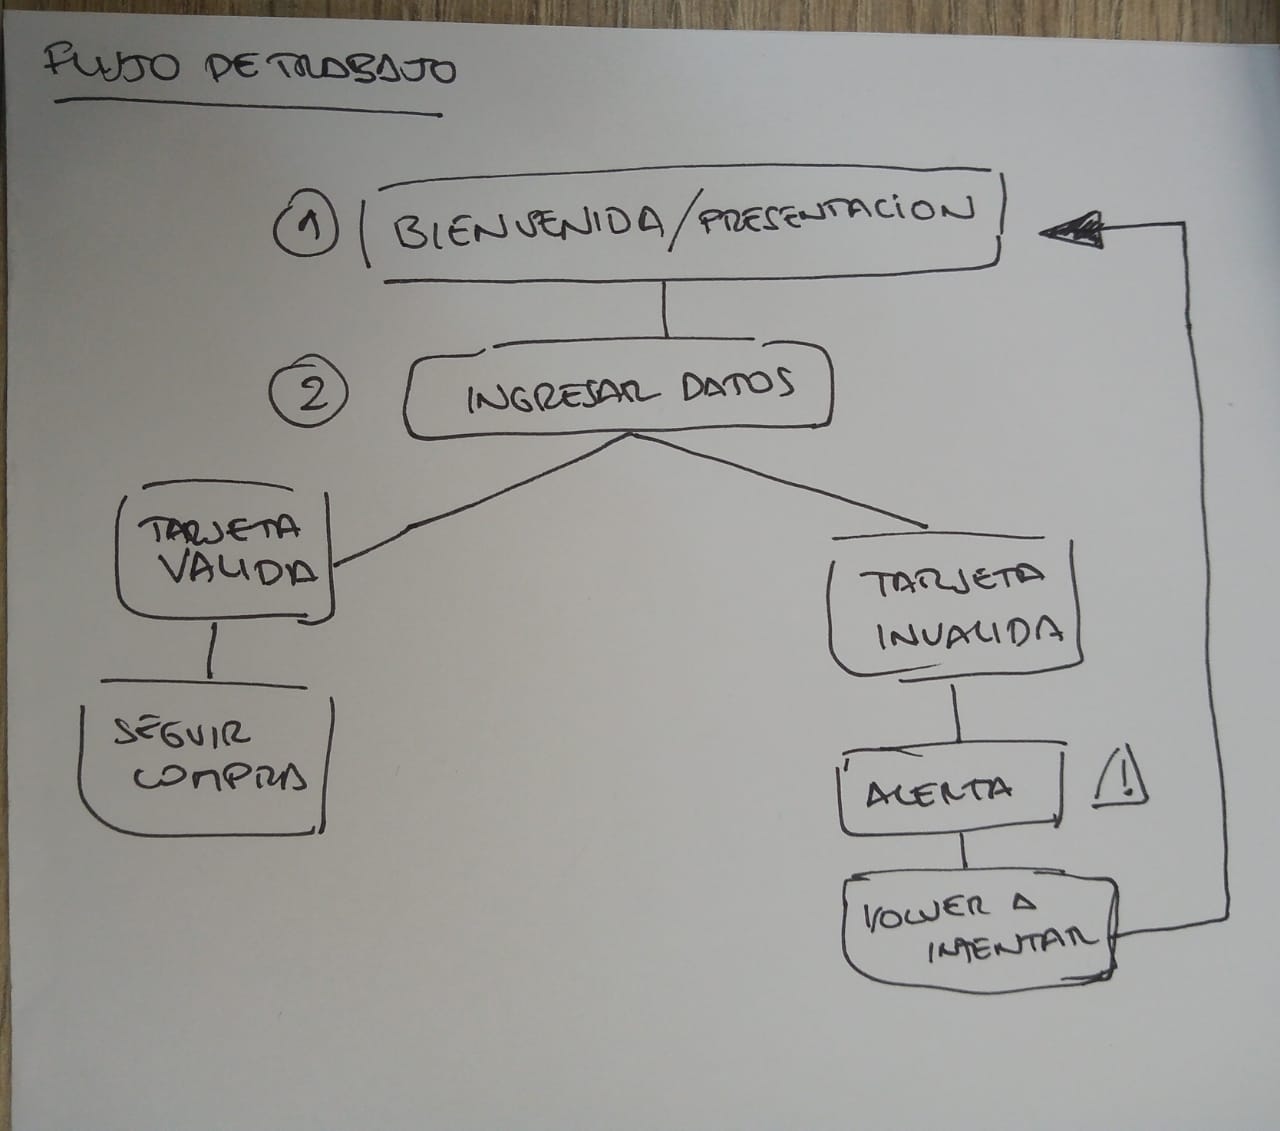 FLUJO DE TRABAJO
1 BIENVENIDA/PRESENTACION
2 INGRESAR DATOS
TARJETA
VALIDA
SEGUIR
COMPRA
TARJETA
INVALIDA
ALERTA !
VOLVER A
INTENTAR